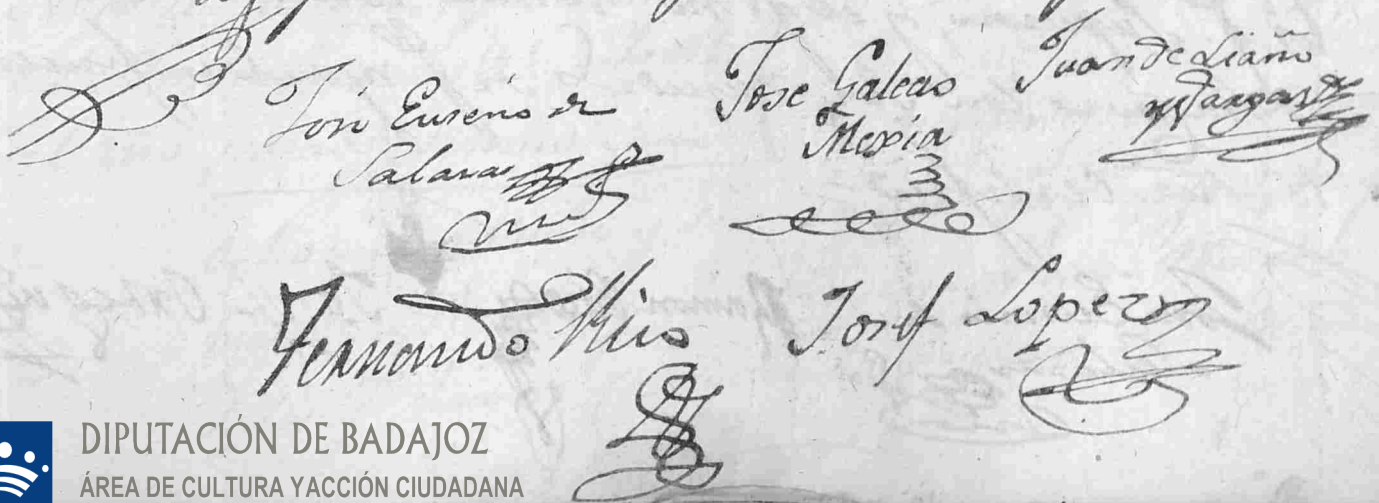 José Euseno de
Salazar
Jose Galeas
Mexia
Juan de Liaño
y Vargas
Fernando Rico
Josef Lopez
DIPUTACIÓN DE BADAJOZ
ÁREA DE CULTURA Y ACCIÓN CIUDADANA